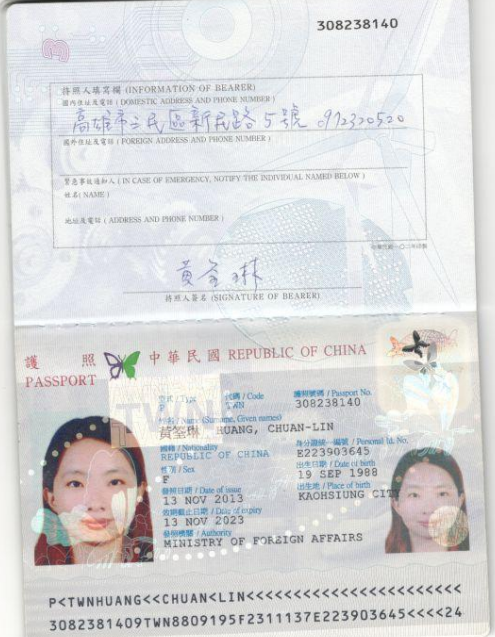 308238140
持照人填寫欄 (INFORMATION OF BEARER)
國內住址及電話 ( DOMESTIC ADDRESS AND PHONE NUMBER )
高雄市三民區新民路5號 0912320520
國外住址及電話 ( FOREIGN ADDRESS AND PHONE NUMBER )
緊急事故通知人 ( IN CASE OF EMERGENCY, NOTIFY THE INDIVIDUAL NAMED BELOW )
姓名 ( NAME )
地址及電話 ( ADDRESS AND PHONE NUMBER )
黃荃琳
持照人簽名 (SIGNATURE OF BEARER)
護照 中華民國 REPUBLIC OF CHINA
PASSPORT
型式 / Type 代碼 / Code 護照號碼 / Passport No.
TWN 308238140
姓名 / Name (Surname, Given names)
HUANG, CHUAN-LIN
國籍 / Nationality 身分證統一編號 / Personal Id. No.
REPUBLIC OF CHINA E223903645
性別 / Sex 出生日期 / Date of birth
F 19 SEP 1988
發照日期 / Date of issue 出生地 / Place of birth
13 NOV 2013 KAOHSIUNG CITY
效期截止日期 / Date of expiry
13 NOV 2023
發照機關 / Authority
MINISTRY OF FOREIGN AFFAIRS
P<TWNHUANG<<CHUAN<LIN<<<<<<<<<<<<<<<<<<<<<<<
3082381409TWN8809195F2311137E223903645<<<<24